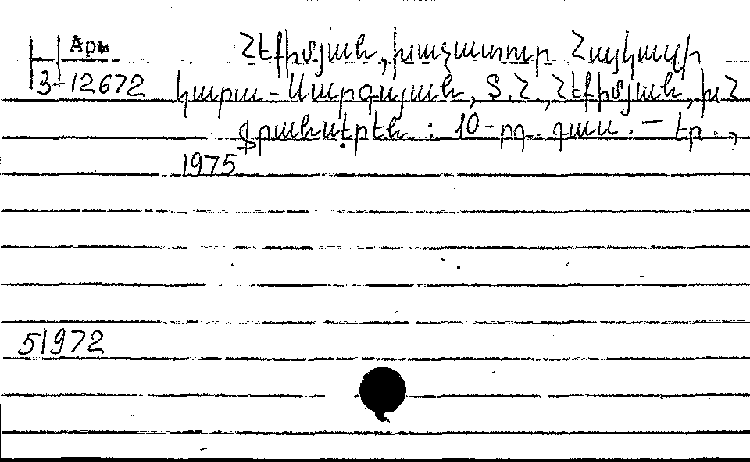 Արև
3-12672
Հէքիմյան, Խաչատուր Հայկազի
Կարա-Սարգսյան, Տ.Հ., Հէքիմյան, Խ.Հ.
Ֆրանսերեն : 10-րդ. դաս. – Եր.,
1975
51972